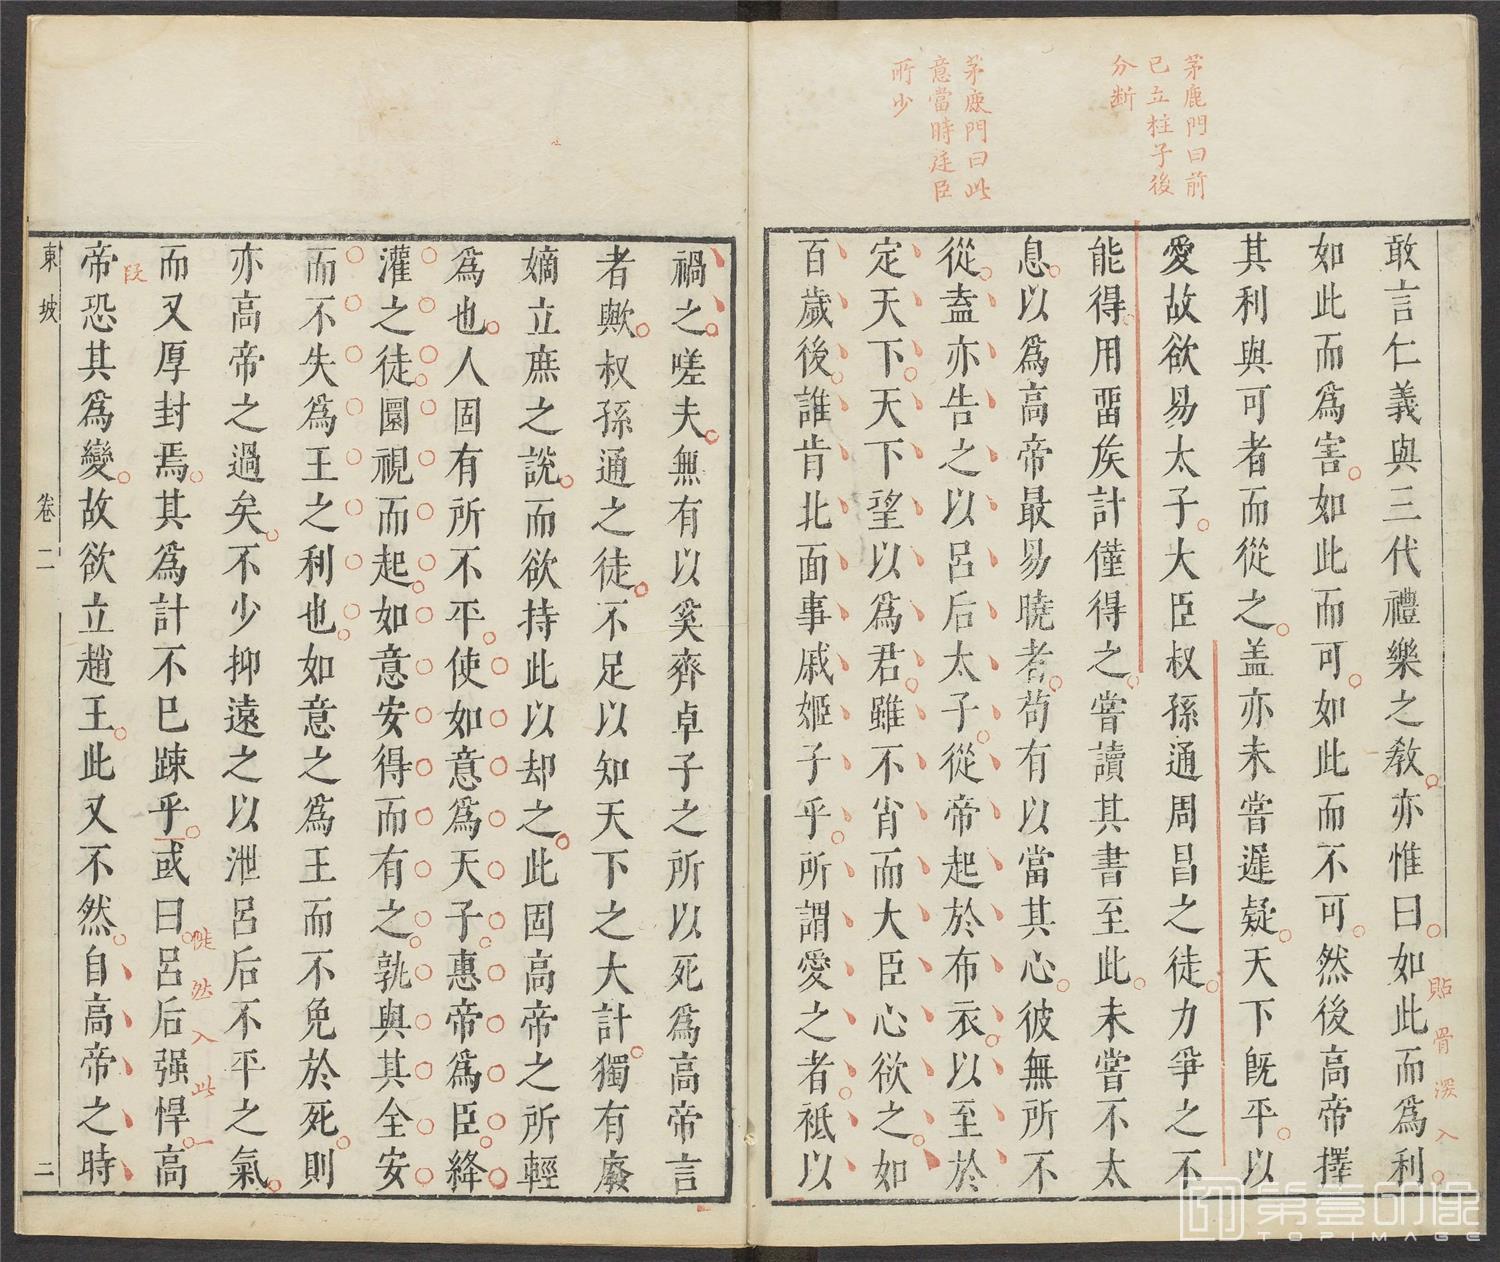 茅鹿門曰前
已立柱子後
分断
茅鹿門曰此
意當時廷臣
所少
敢言仁義與三代禮樂之教亦惟曰如此而爲利
如此而爲害如此而可如此而不可然後高帝擇
其利與可者而從之盖亦未嘗遲疑天下既平以
愛故欲易太子大臣叔孫通周昌之徒力爭之不
能得用畱侯計僅得之嘗讀其書至此未嘗不太
息以爲高帝最易曉者苟有以當其心彼無所不
從盍亦告之以呂后太子從帝起於布衣以至於
定天下天下望以爲君雖不肖而大臣心欲之如
百歲後誰肯北面事戚姬子乎所謂愛之者祗以
貼骨深入
禍之嗟夫無有以奚齊卓子之所以死爲高帝言
者歟叔孫通之徒不足以知天下之大計獨有廢
嫡立庶之說而欲持此以却之此固高帝之所輕
爲也人固有所不平使如意爲天子惠帝爲臣絳
灌之徒圜視而起如意安得而有之孰與其全安
而不失爲王之利也如意之爲王而不免於死則
亦高帝之過矣不少抑遠之以泄呂后不平之氣
而又厚封焉其爲計不已踈乎或曰呂后强悍高
帝恐其爲變故欲立趙王此又不然自高帝之時
段
然入此一
東坡
卷二
二
第壹印像
TOPIMAGE